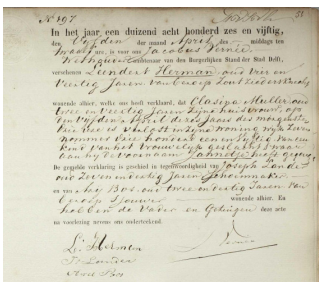 No 197
In het jaar, een duizend acht honderd zes en vijftig,
den Vijfden der maand April des middags ten
twaalf ure, is voor ons Jacobus Vernée
Wethouder Ambtenaar van den Burgerlijken Stand der Stad Delft,
verschenen Leendert Herman, oud Vier en
Veertig Jaren van beroep Zoutziedersknecht
wonende alhier, welke ons heeft verklaard, dat Clasijna Muller, oud
twee en Veertig Jaren Zijne huisvrouw op
den Vijfden April dezes Jaars des morgens te
in zijne woning
nommer honderd een en Vijftig van een
kind van het Vrouwelijk geslacht
aan hij de voornaam Jannetje heeft gegeven
De gezegde verklaring is geschied in tegenwoordigheid van Joseph Lander
oud Zeven en dertig Jaren Schoenmaker
en van Arij Bos, oud twee en veertig Jaren van
beroep Sjouwer wonende alhier. En
hebben de Vader en Getuigen deze acte
na voorlezing nevens ons onderteekend.
L: Herman
J. Lander
Arie Bos